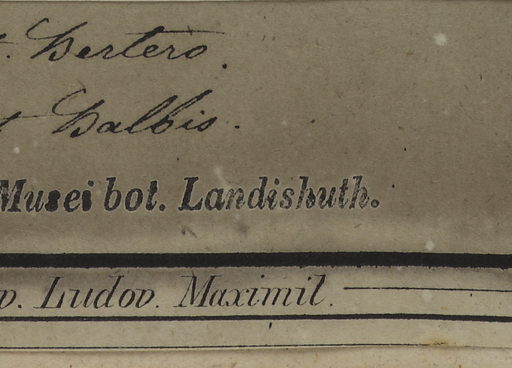 t. Bertero.
t Balbis.
Musei bot. Landishuth.
v. Ludov. Maximil.